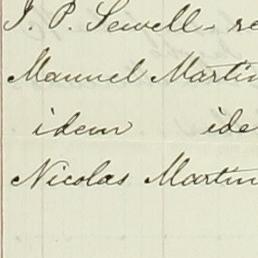 J. P. Sewell - re
Manuel Martin
idem ide
Nicolas Martin